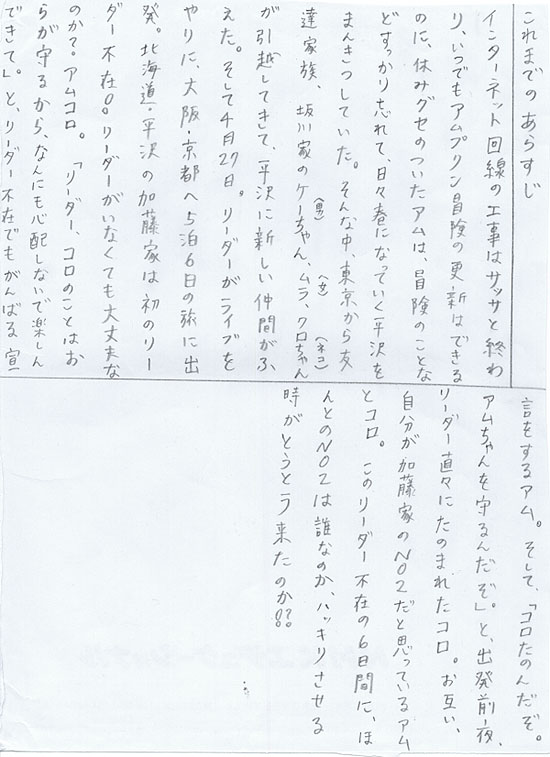 これまでのあらすじ
インターネット回線の工事はサッサと終わ
り、いつでもアムプリン冒険の更新はできる
のに、休みグセのついたアムは、冒険のことな
どすっかり忘れて、日々春になっていく平沢を
まんきつしていた。そんな中、東京から友
達家族、坂川家のケーちゃん(男)、ムラ(女)、クロちゃん(ネコ)
が引越してきて、平沢に新しい仲間がふ
えた。そして4月27日。リーダーがライブを
やりに、大阪・京都へ5泊6日の旅に出
発。北海道・平沢の加藤家は初のリー
ダー不在!!リーダーがいなくても大丈夫な
のか?アムコロ。「リーダー、コロのことはお
らが守るから、なんにも心配しないで楽しん
できて。」と、リーダー不在でもがんばる宣
言をするアム。そして、「コロたのんだぞ。
アムちゃんを守るんだぞ。」と、出発前夜、
リーダー直々にたのまれたコロ。お互い、
自分が加藤家のNO2だと思っているアム
とコロ。このリーダー不在の6日間に、ほ
んとのNO2は誰なのか、ハッキリさせる
時がとうとう来たのか!!?